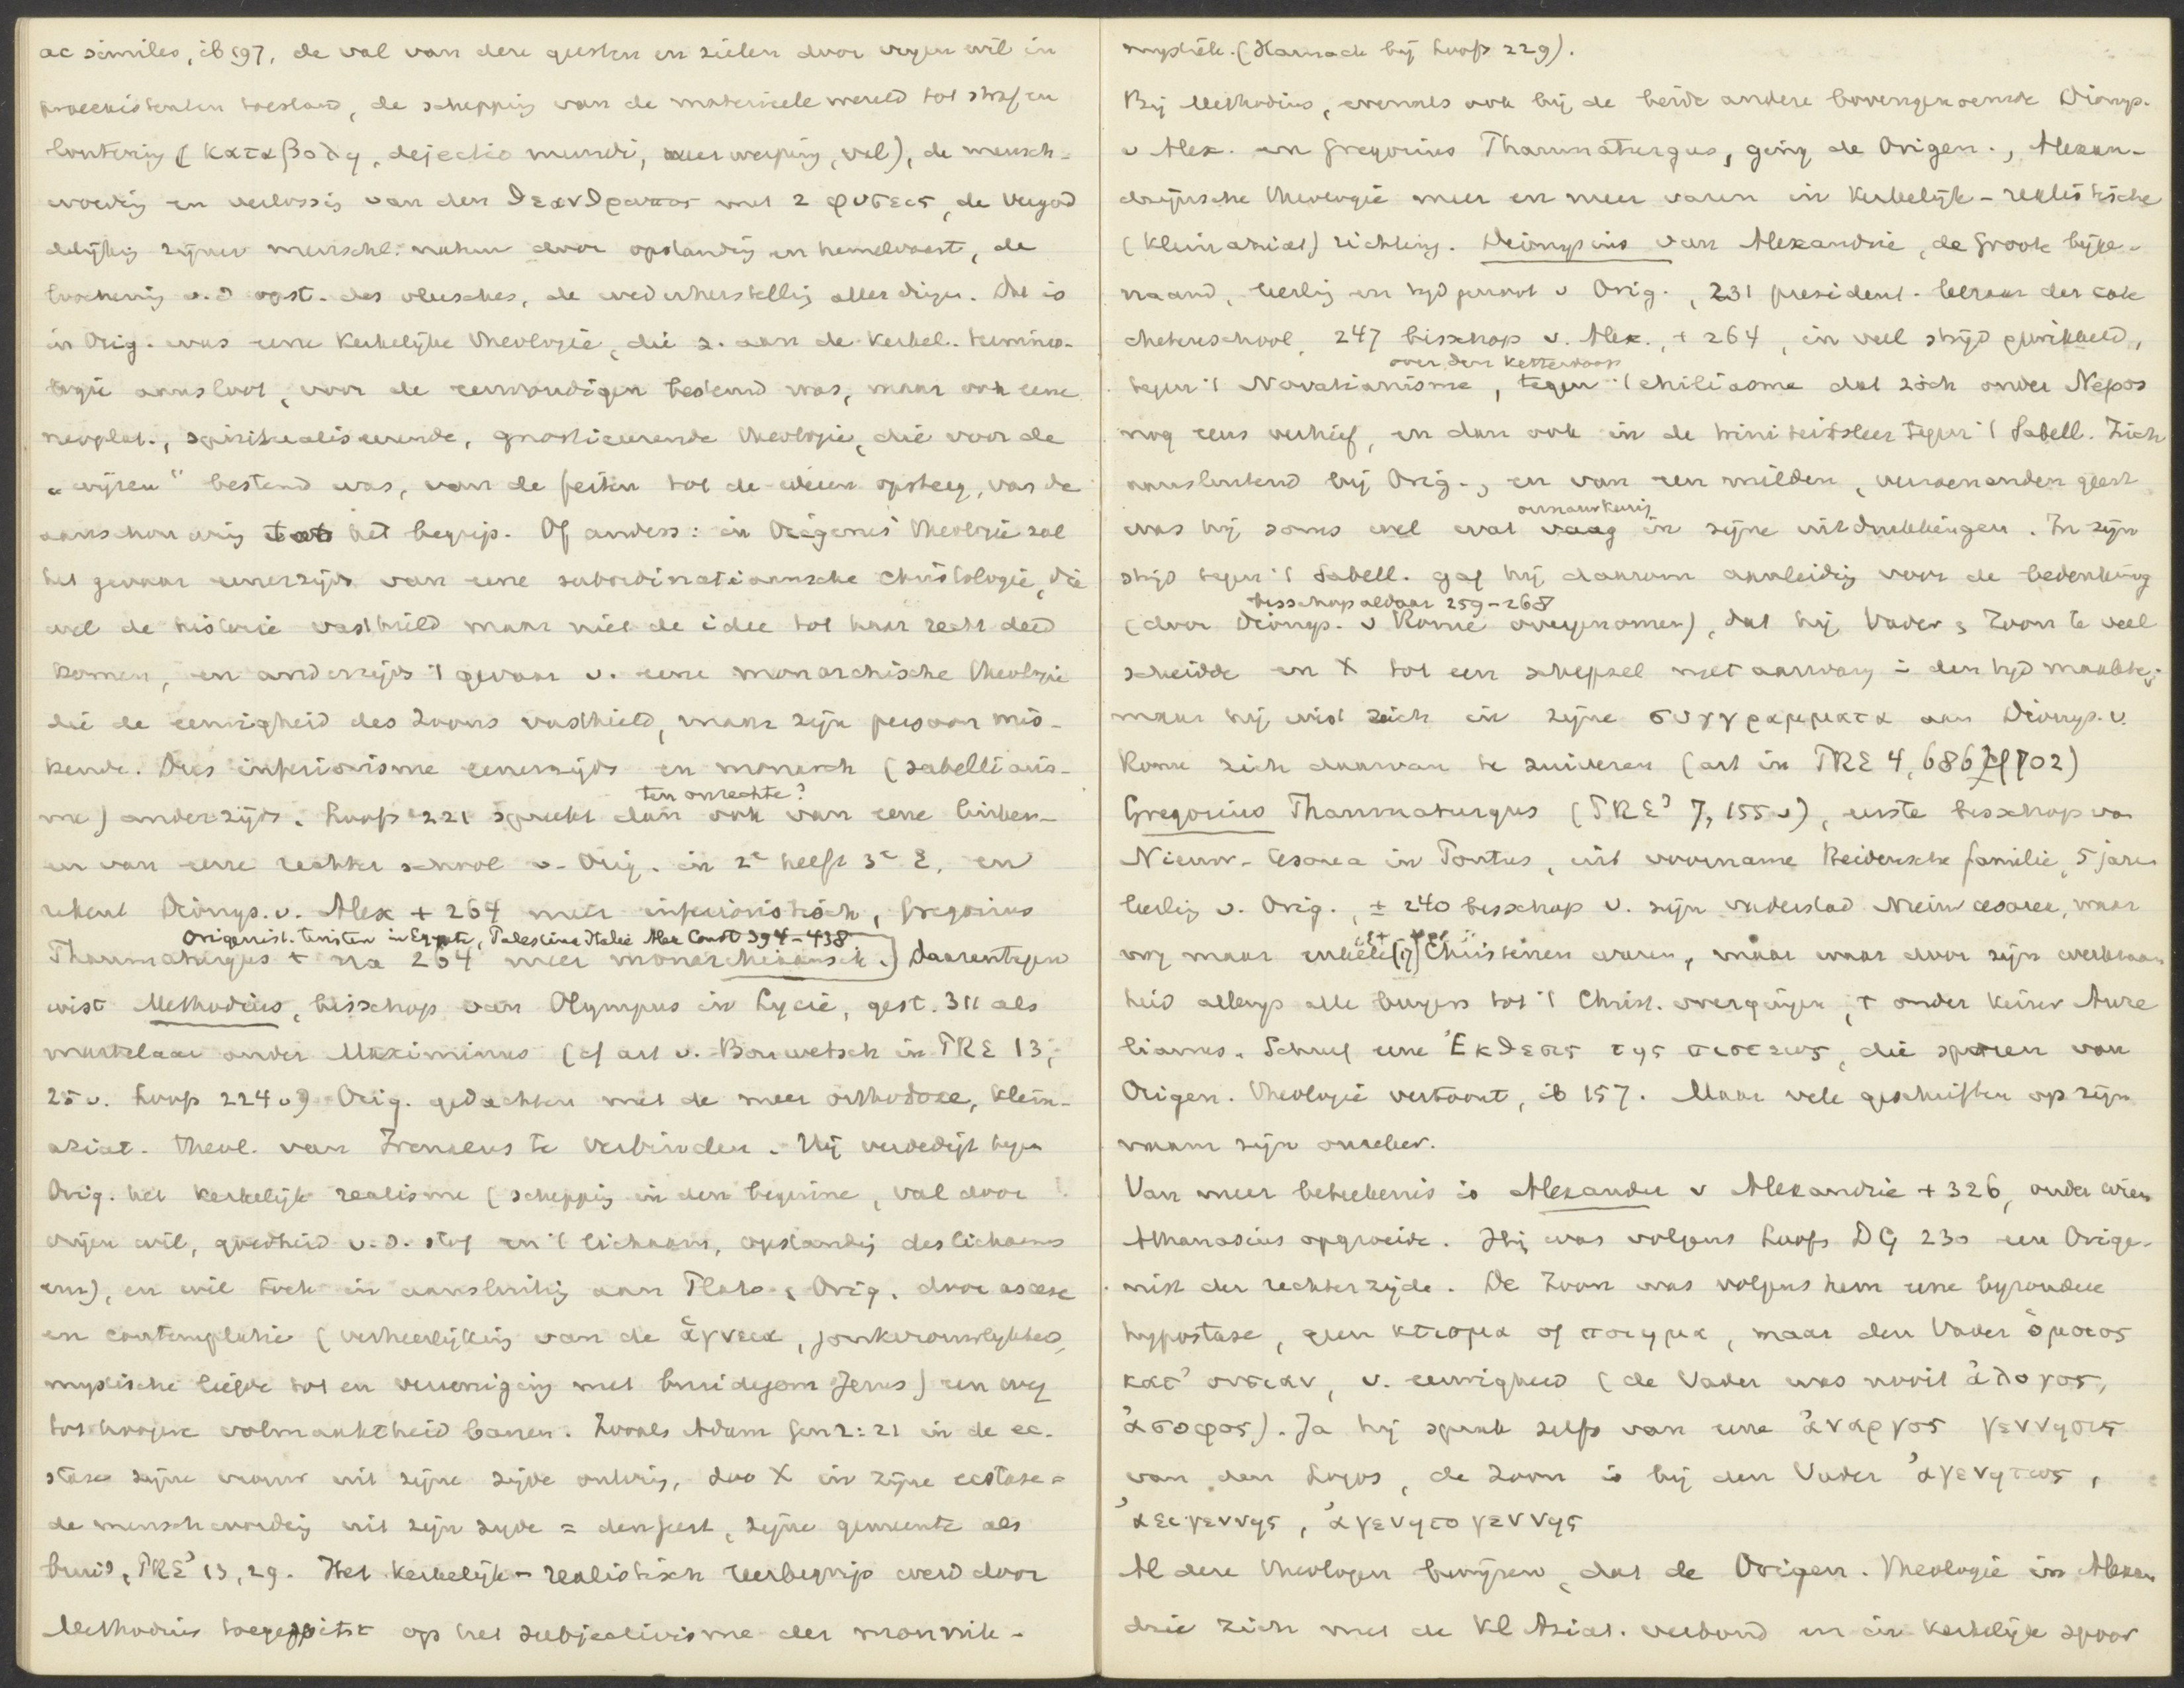 ac similes, ib 197, de val van deze geesten en zielen door vrijen wil in
praeexistenten toestand, de schepping van de materieele wereld tot straf en
loutering (καταβολη, dejectio mundi, neerwerping, val), de mensch-
wording en verlossing van den θεανθρωπος met 2 φυσεις, de vergod
delijking zijner menschl. natuur door opstanding en hemelvaart, de
loochening v. d opst. des vleesches, de wederherstelling aller dingen. Dat is
in Orig. was eene kerkelijke theologie, die z. aan de kerkel. termino-
logie aansloot, voor de eenvoudigen bestemd was, maar ook eene
neoplat., spiritualiseerende, gnosticeerende theologie, die voor de
„wijzen" bestemd was, van de feiten tot de ideeën opsteeg, van de
aanschouwing tot het begrip. Of anders: in Origenes' theologie zal
het gevaar eenerzijds van eene subordinatiaansche christologie, die
wel de historie vasthield maar niet de idee tot haar recht deed
komen, en anderzijds 't gevaar v. eene monarchische theologie
die de eenigheid des Zoons vasthield, maar zijn persoon mis-
kende. Dus inferiorisme eenerzijds en monarch (sabellianis-
me) anderzijds. Loofs 221 spreekt dan ook van eene linker-
ten onrechte?
en van eene rechter school v. Orig. in 2e helft 3e E. en
rekent Dionys. v. Alex + 264 meer inferioristisch, Gregorius
Origenist. twisten in Egypte, Palestina Italië Alex Const 394-438
Thaumaturgus + na 264 meer monarchiaansch.] Daarentegen
wist Methodius, bisschop van Olympus in Lycië, gest. 311 als
martelaar onder Maximinus (cf art v. Bonwetsch in PRE 13,
25 v. Loofs 224 v) Orig. gedachten met de meer orthodoxe, klein-
aziat. theol. van Irenaeus te verbinden. Hij verdedigt tegen
Orig. het kerkelijk realisme (schepping in den beginne, val door
vrijen wil, goedheid v. d. stof en 't lichaam, opstanding des lichaams
enz), en wil toch in aansluiting aan Plato & Orig. door ascese
en contemplatie (verheerlijking van de ἁγνεια, jonkvrouwlijkheid,
mystische liefde tot en vereeniging met bruidegom Jezus) een weg
tot hoogere volmaaktheid banen. Zooals Adam Gen 2:21 in de ec-
stase zijne vrouw uit zijne zijde ontving, zoo X in zijne ecstase =
de menschwording uit zijn zijde = den geest, zijne gemeente als
bruid, PRE³ 13, 29. Het kerkelijk-realistisch leerbegrip werd door
Methodius toegespitst op het subjectivisme der monnik-
mystiek. (Harnack bij Loofs 229).
Bij Methodius, evenals ook bij de beide andere bovengenoemde Dionys.
v Alex. en Gregorius Thaumaturgus, ging de Origen., Alexan-
drijnsche theologie meer en meer varen in kerkelijk-realistische
(kleinaziat) richting. Dionysius van Alexandrië, de Groote bijge-
naamd, leerling en tijdgenoot v Orig., 231 president-leeraar der cate
chetenschool, 247 bisschop v. Alex., + 264, in veel strijd gewikkeld,
over den ketterdoop
tegen 't Novatianisme, tegen 't chiliasme dat zich onder Nepos
nog eens verhief, en dan ook in de triniteitsleer tegen 't Sabell. Zich
aansluitend bij Orig., en van een milden, verzoenenden geest
onnauwkeurig
was hij soms wel wat vaag in zijne uitdrukkingen. In zijn
strijd tegen 't Sabell. gaf hij daarom aanleiding voor de bedenking
bisschop aldaar 259-268
(door Dionys. v Rome overgenomen), dat hij Vader & Zoon te veel
scheidde en X tot een schepsel met aanvang in den tijd maakte;
maar hij wist zich in zijne συγγραμματα aan Dionys. v.
Rome zich daarvan te zuiveren (art in PRE 4, 686 cf 702)
Gregorius Thaumaturgus (PRE³ 7, 155 v), eerste bisschop van
Nieuw-Cesarea in Pontus, uit voorname Heidensche familie, 5 jaren
leerling v. Orig., ± 240 bisschop v. zijn vaderstad Nieuwcesarea, waar
nog maar enkele (17) Christenen waren, maar waar door zijn werkzaam
heid allengs alle burgers tot 't Christ. overgingen, + onder keizer Aure
lianus. Schreef eene Ἐκθεσις της πιστεως, die sporen van
Origen. theologie vertoont, ib 157. Maar vele geschriften op zijn
naam zijn onzeker.
Van meer beteekenis is Alexander v Alexandrië + 326, onder wien
Athanasius opgroeide. Hij was volgens Loofs DG 230 een Orige-
nist der rechterzijde. De Zoon was volgens hem eene byzondere
hypostase, geen κτισμα of ποιημα, maar den Vader ὁμοιος
κατ' ουσιαν, v. eeuwigheid (de Vader was nooit ἀλογος,
ἀσοφος). Ja hij sprak zelfs van eene ἀναρχος γεννησις
van den Logos, de Zoon is bij den Vader ἀγενητως,
ἀειγεννης, ἀγενητογεννης
Al deze theologen bewijzen, dat de Origen. theologie in Alexan
drië zich met de Kl Aziat. verbond en in kerkelijk spoor